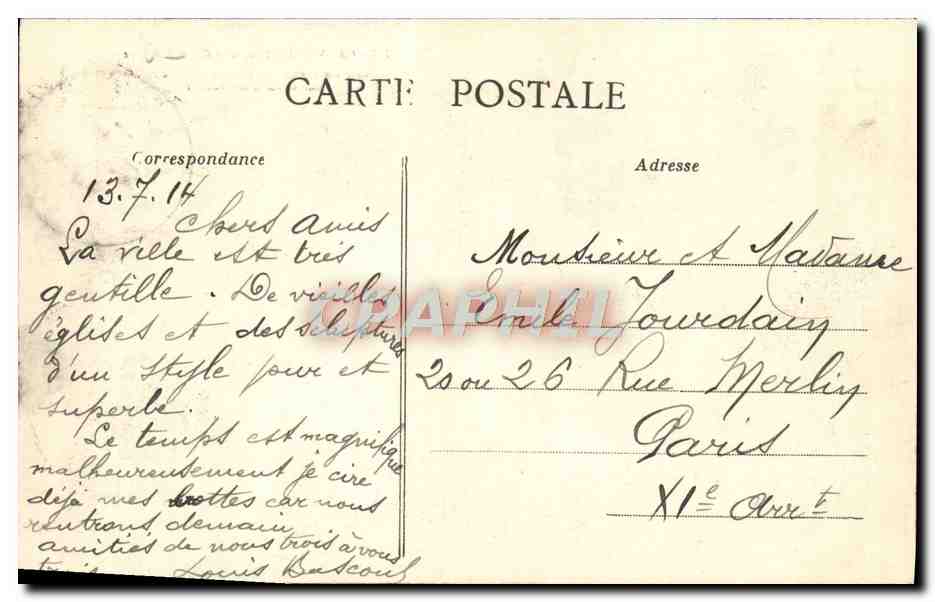 CARTE POSTALE
Correspondance
Adresse
13.7.14
Chers amis
La ville est très
gentille. De vieilles
églises et des sculptures
d'un style pur et
superbe.
Le temps est magnifique
malheureusement je cire
déjà mes bottes car nous
rentrons demain
amitiés de nous trois à vous
trois Louis
Monsieur et Madame
Emile Jourdain
20 ou 26 Rue Merlin
Paris
XIe Arrt
CPAPHIL